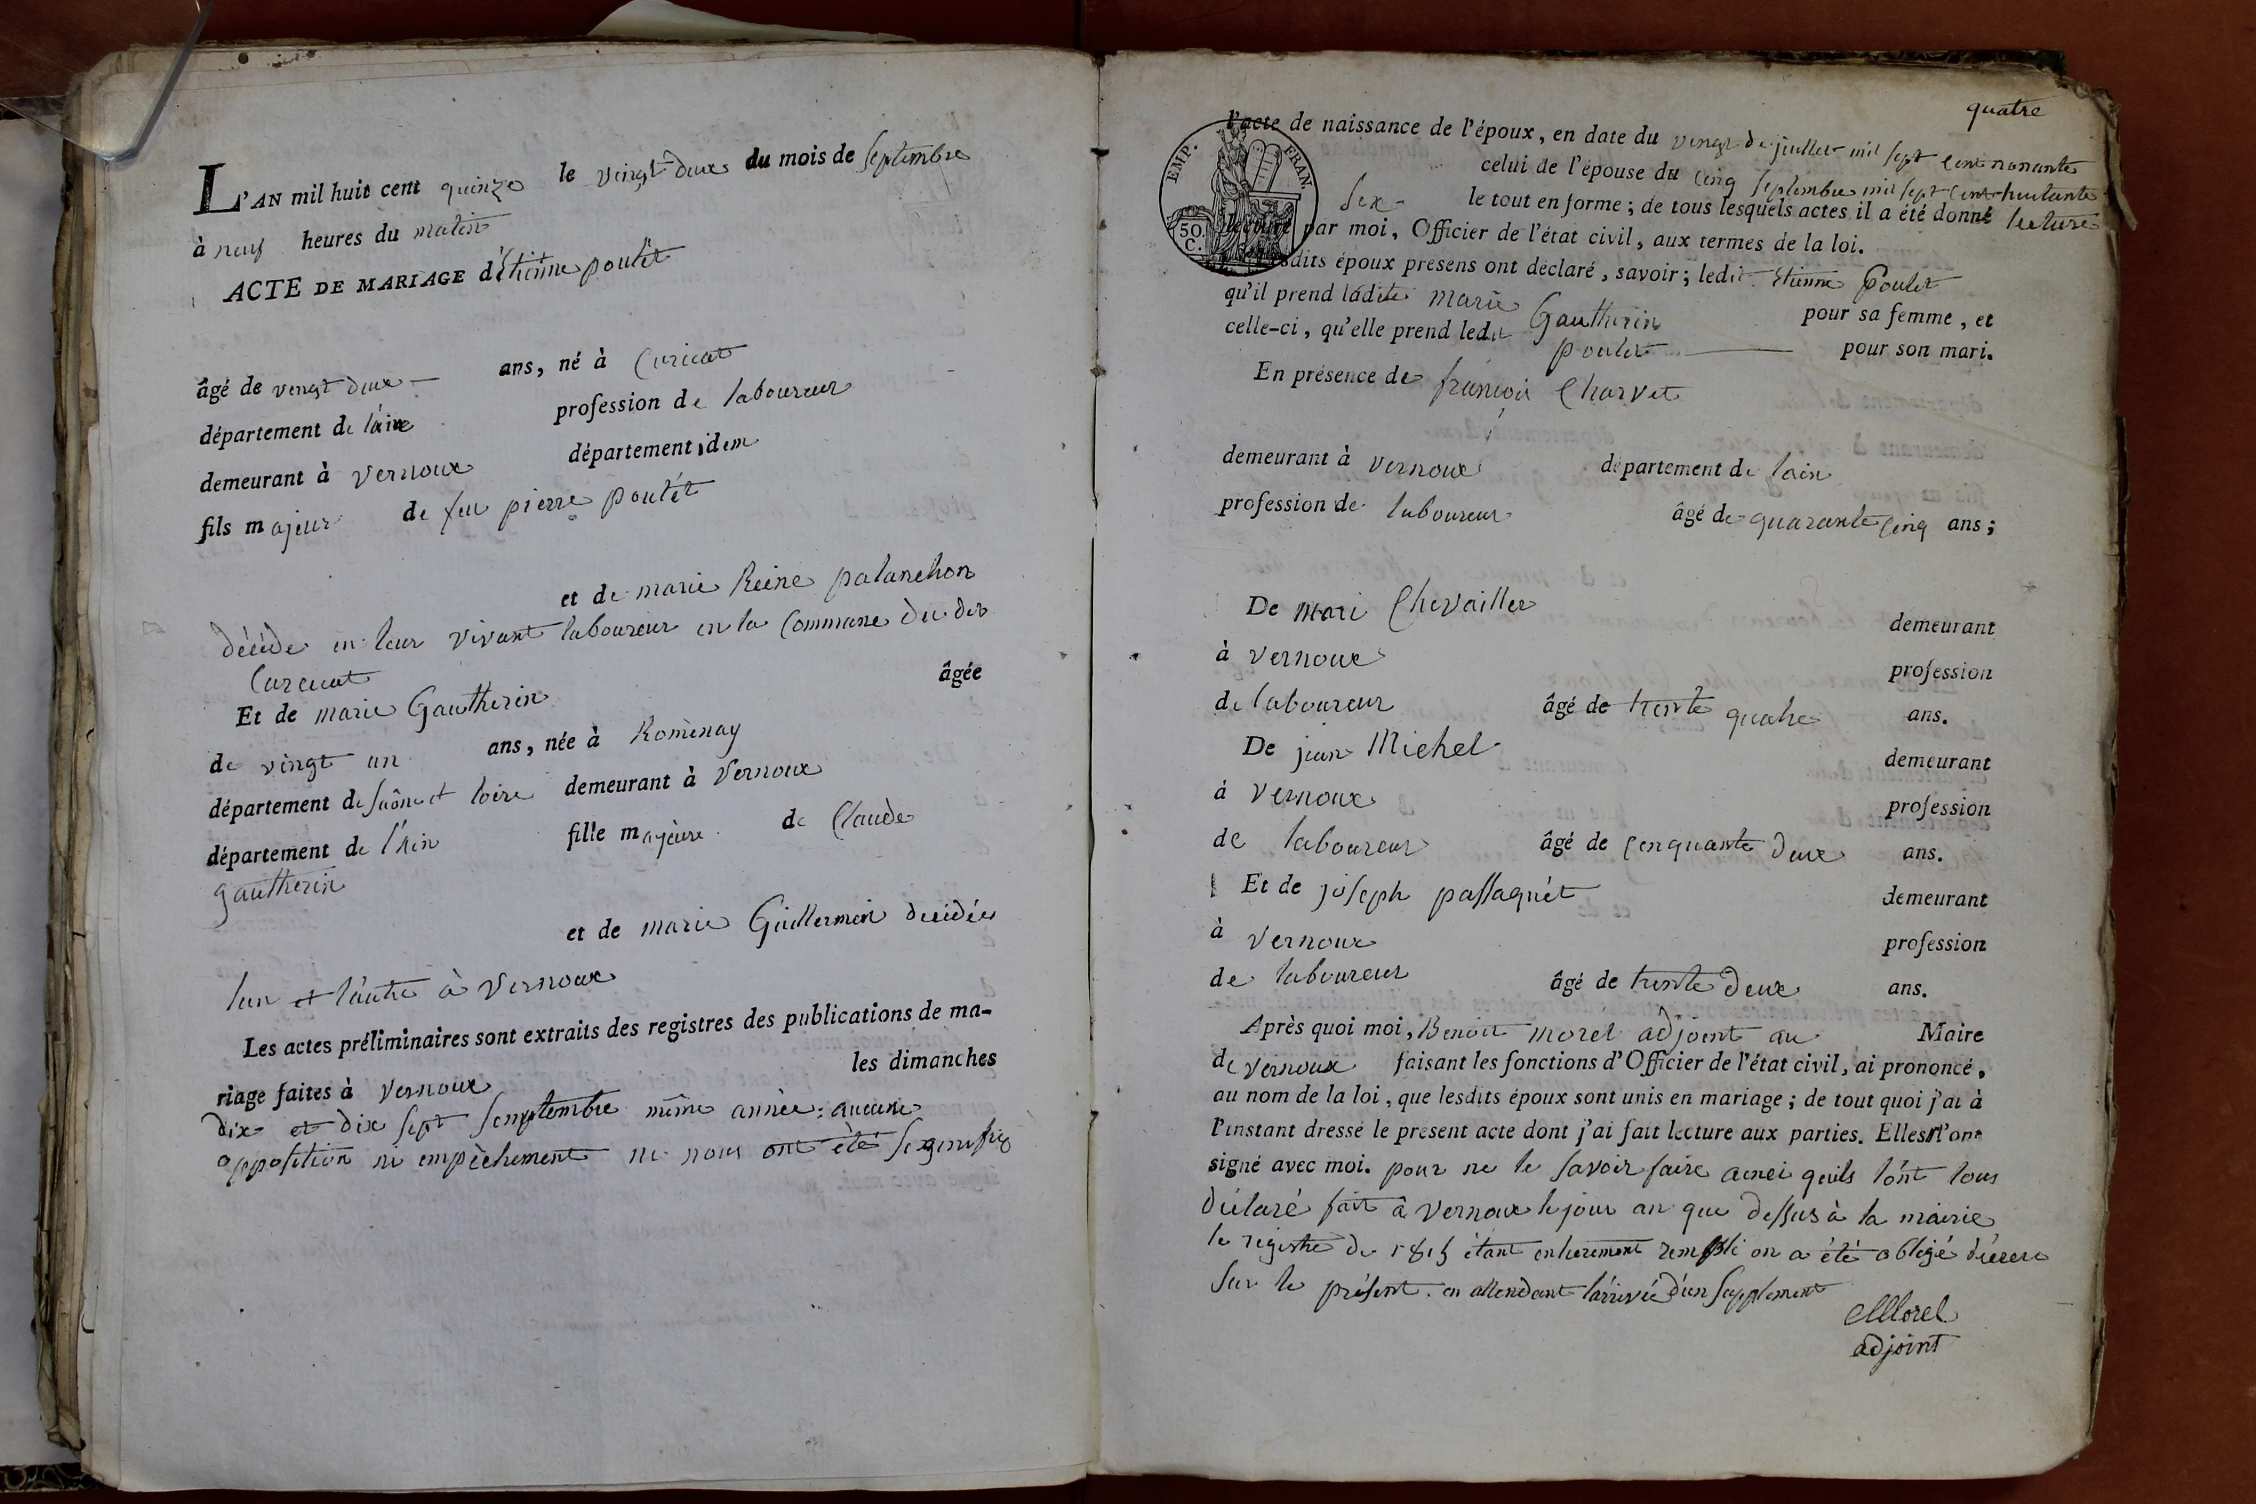 L'AN mil huit cent quinze le vingt deux du mois de septembre
à neuf heures du matin
ACTE DE MARIAGE d'étienne poulet
âgé de vengt deux ans, né à Curciat
département de l'ain profession de laboureur
demeurant à vernoux département idem
fils majeur de feu pierre poulét
et de marie Reine palanchon
décédé en leur vivant laboureur en la Commune du dit
Curciat
Et de marie Gautherin âgée
de vingt un ans, née à Romenay
département de saône et loire demeurant à Vernoux
département de l'Ain fille majeure de Claude
gautherin
et de marie Guillermin décédés
lun et l'autre à Vernoux
Les actes préliminaires sont extraits des registres des publications de ma-
riage faites à Vernoux les dimanches
dix et dix sept semptembre même année: aucune
opposition ni empêchement ne nous ont été segenifié
quatre
l'acte de naissance de l'époux, en date du vingt de juillet mil sept cent nonante
EMP. FRAN.
50. C.
celui de l'épouse du cinq septembre mil sept cent huitante
sex le tout en forme; de tous lesquels actes il a été donné lecture
lecture par moi, Officier de l'état civil, aux termes de la loi.
Lesdits époux présens ont déclaré, savoir; ledit Etienne Poulet
qu'il prend ladite marie Gautherin pour sa femme, et
celle-ci, qu'elle prend ledit poulet pour son mari.
En présence de françois Charvet
demeurant à vernoux département de lain
profession de laboureur âgé de quarante cinq ans;
De mari Chevailler demeurant
à vernoux profession
de laboureur âgé de trente quatre ans.
De jean Michel demeurant
à vernoux profession
de laboureur âgé de cenquante deux ans.
Et de joseph passaquét demeurant
à vernoux profession
de laboureur âgé de trente deux ans.
Après quoi moi, Benoit morél adjoint au Maire
de vernoux faisant les fonctions d'Officier de l'état civil, ai prononcé,
au nom de la loi, que lesdits époux sont unis en mariage; de tout quoi j'ai à
l'instant dressé le présent acte dont j'ai fait lecture aux parties. Elles l'ont
signé avec moi. pour ne le savoir faire ainei quils lónt tous
déclaré fait à vernoux le jour an que dessus à la mairie
le registre de 1815 étant entierement rempli on a été obligé décrire
sur le présent. en attendant lárrivée d'un supplement
Morel
adjoint